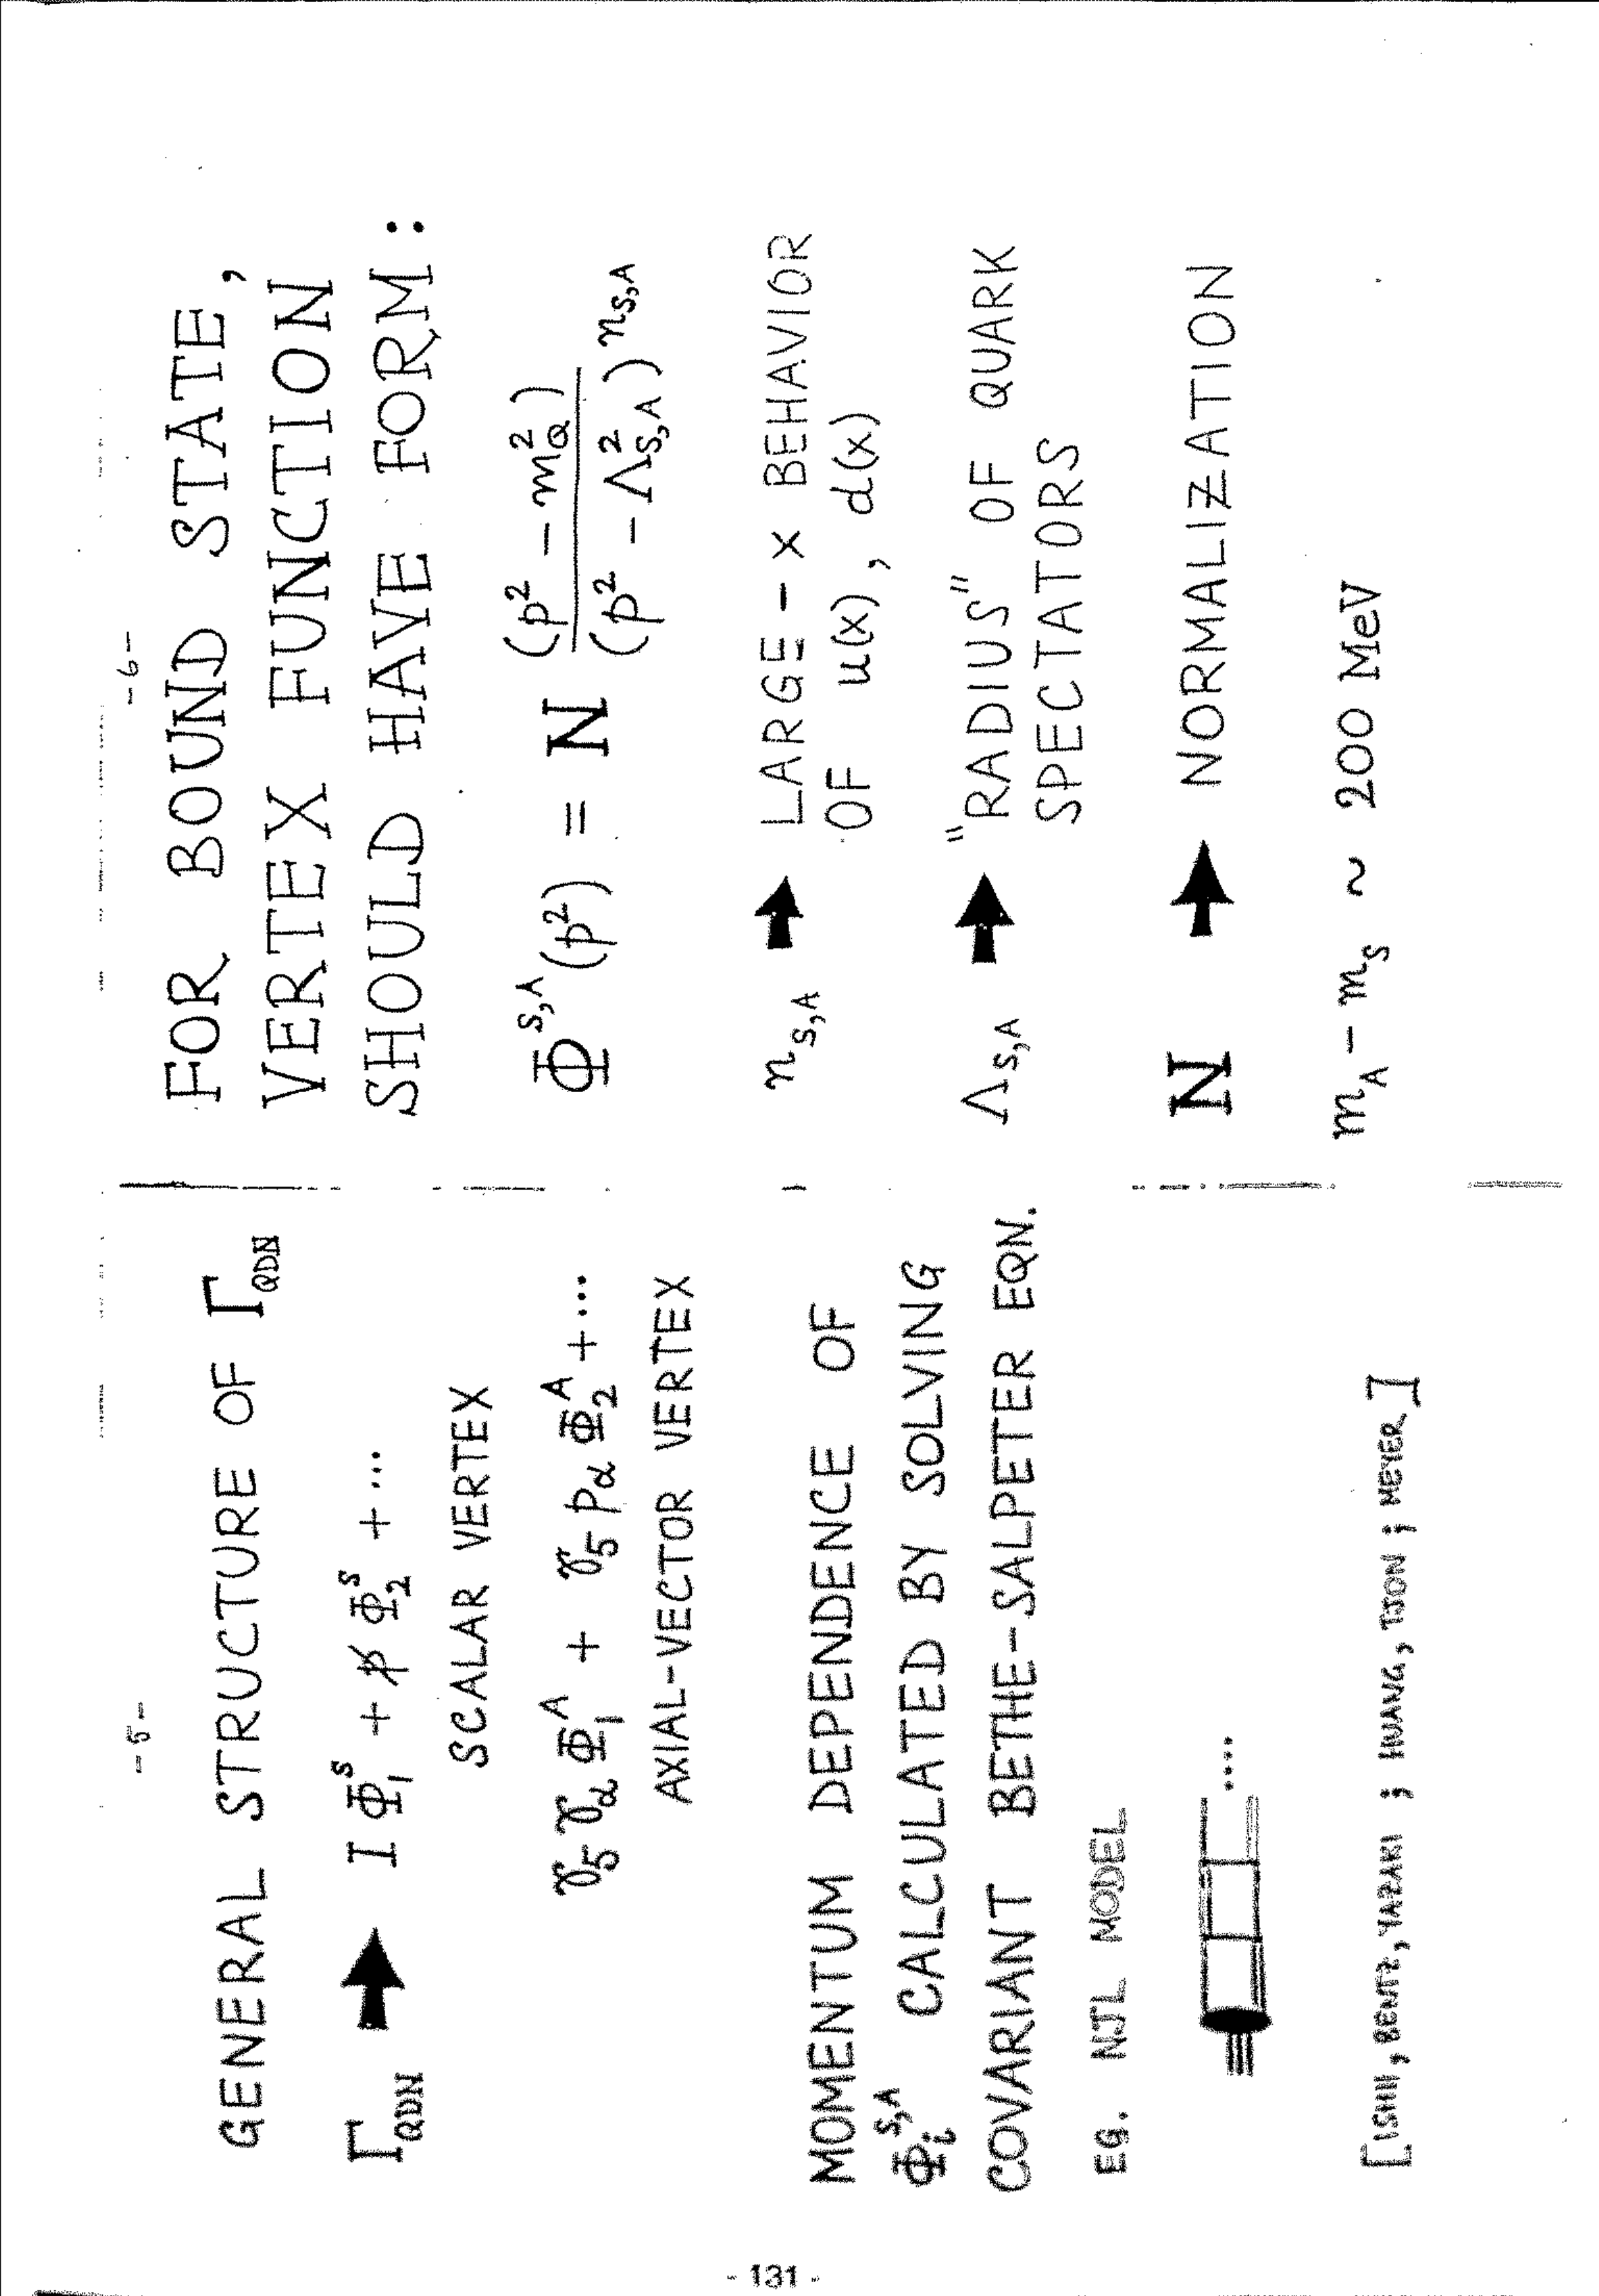 -5-
GENERAL STRUCTURE OF Γ_QDN
Γ_QDN → I Φ₁^S + p̸ Φ₂^S + ...
SCALAR VERTEX
γ₅ γ_α Φ₁^A + γ₅ p_α Φ₂^A + ...
AXIAL-VECTOR VERTEX
MOMENTUM DEPENDENCE OF
Φ_i^{S,A} CALCULATED BY SOLVING
COVARIANT BETHE-SALPETER EQN.
EG. NJL MODEL
....
[ISHII, BENTZ, YAZAKI ; HUANG, TJON ; MEYER]
-6-
FOR BOUND STATE,
VERTEX FUNCTION
SHOULD HAVE FORM :
Φ^{S,A}(p²) = N (p² - m_Q²) / (p² - Λ²_{S,A})^{n_{S,A}}
n_{S,A} → LARGE-x BEHAVIOR
OF u(x), d(x)
Λ_{S,A} → "RADIUS" OF QUARK
SPECTATORS
N → NORMALIZATION
m_A - m_S ~ 200 MeV
- 131 -